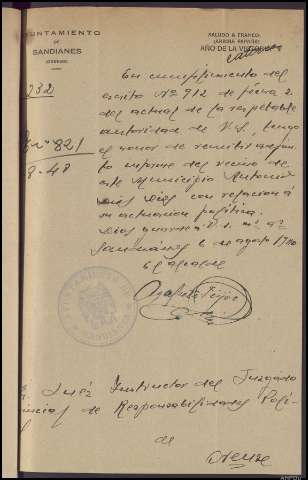 AYUNTAMIENTO
DE
SANDIANES
(ORENSE)
SALUDO A FRANCO:
¡ARRIBA ESPAÑA!
AÑO DE LA VICTORIA
232
Nº 821
8-48
En cumplimiento del
escrito Nº 912 de fecha 2
del actual de la respetable
autoridad de V.S., tengo
el honor de remitir adjun-
to informe del vecino de
este Municipio Antonio
con relación á
su actuación política.
Dios guarde á V.S. m. a.
Sandianes 6 de agosto 1940
El alcalde
AYUNTAMIENTO
SANDIANES
Juéz Instructor del Juzgado
de Responsabilidades Polí-
de
Orense